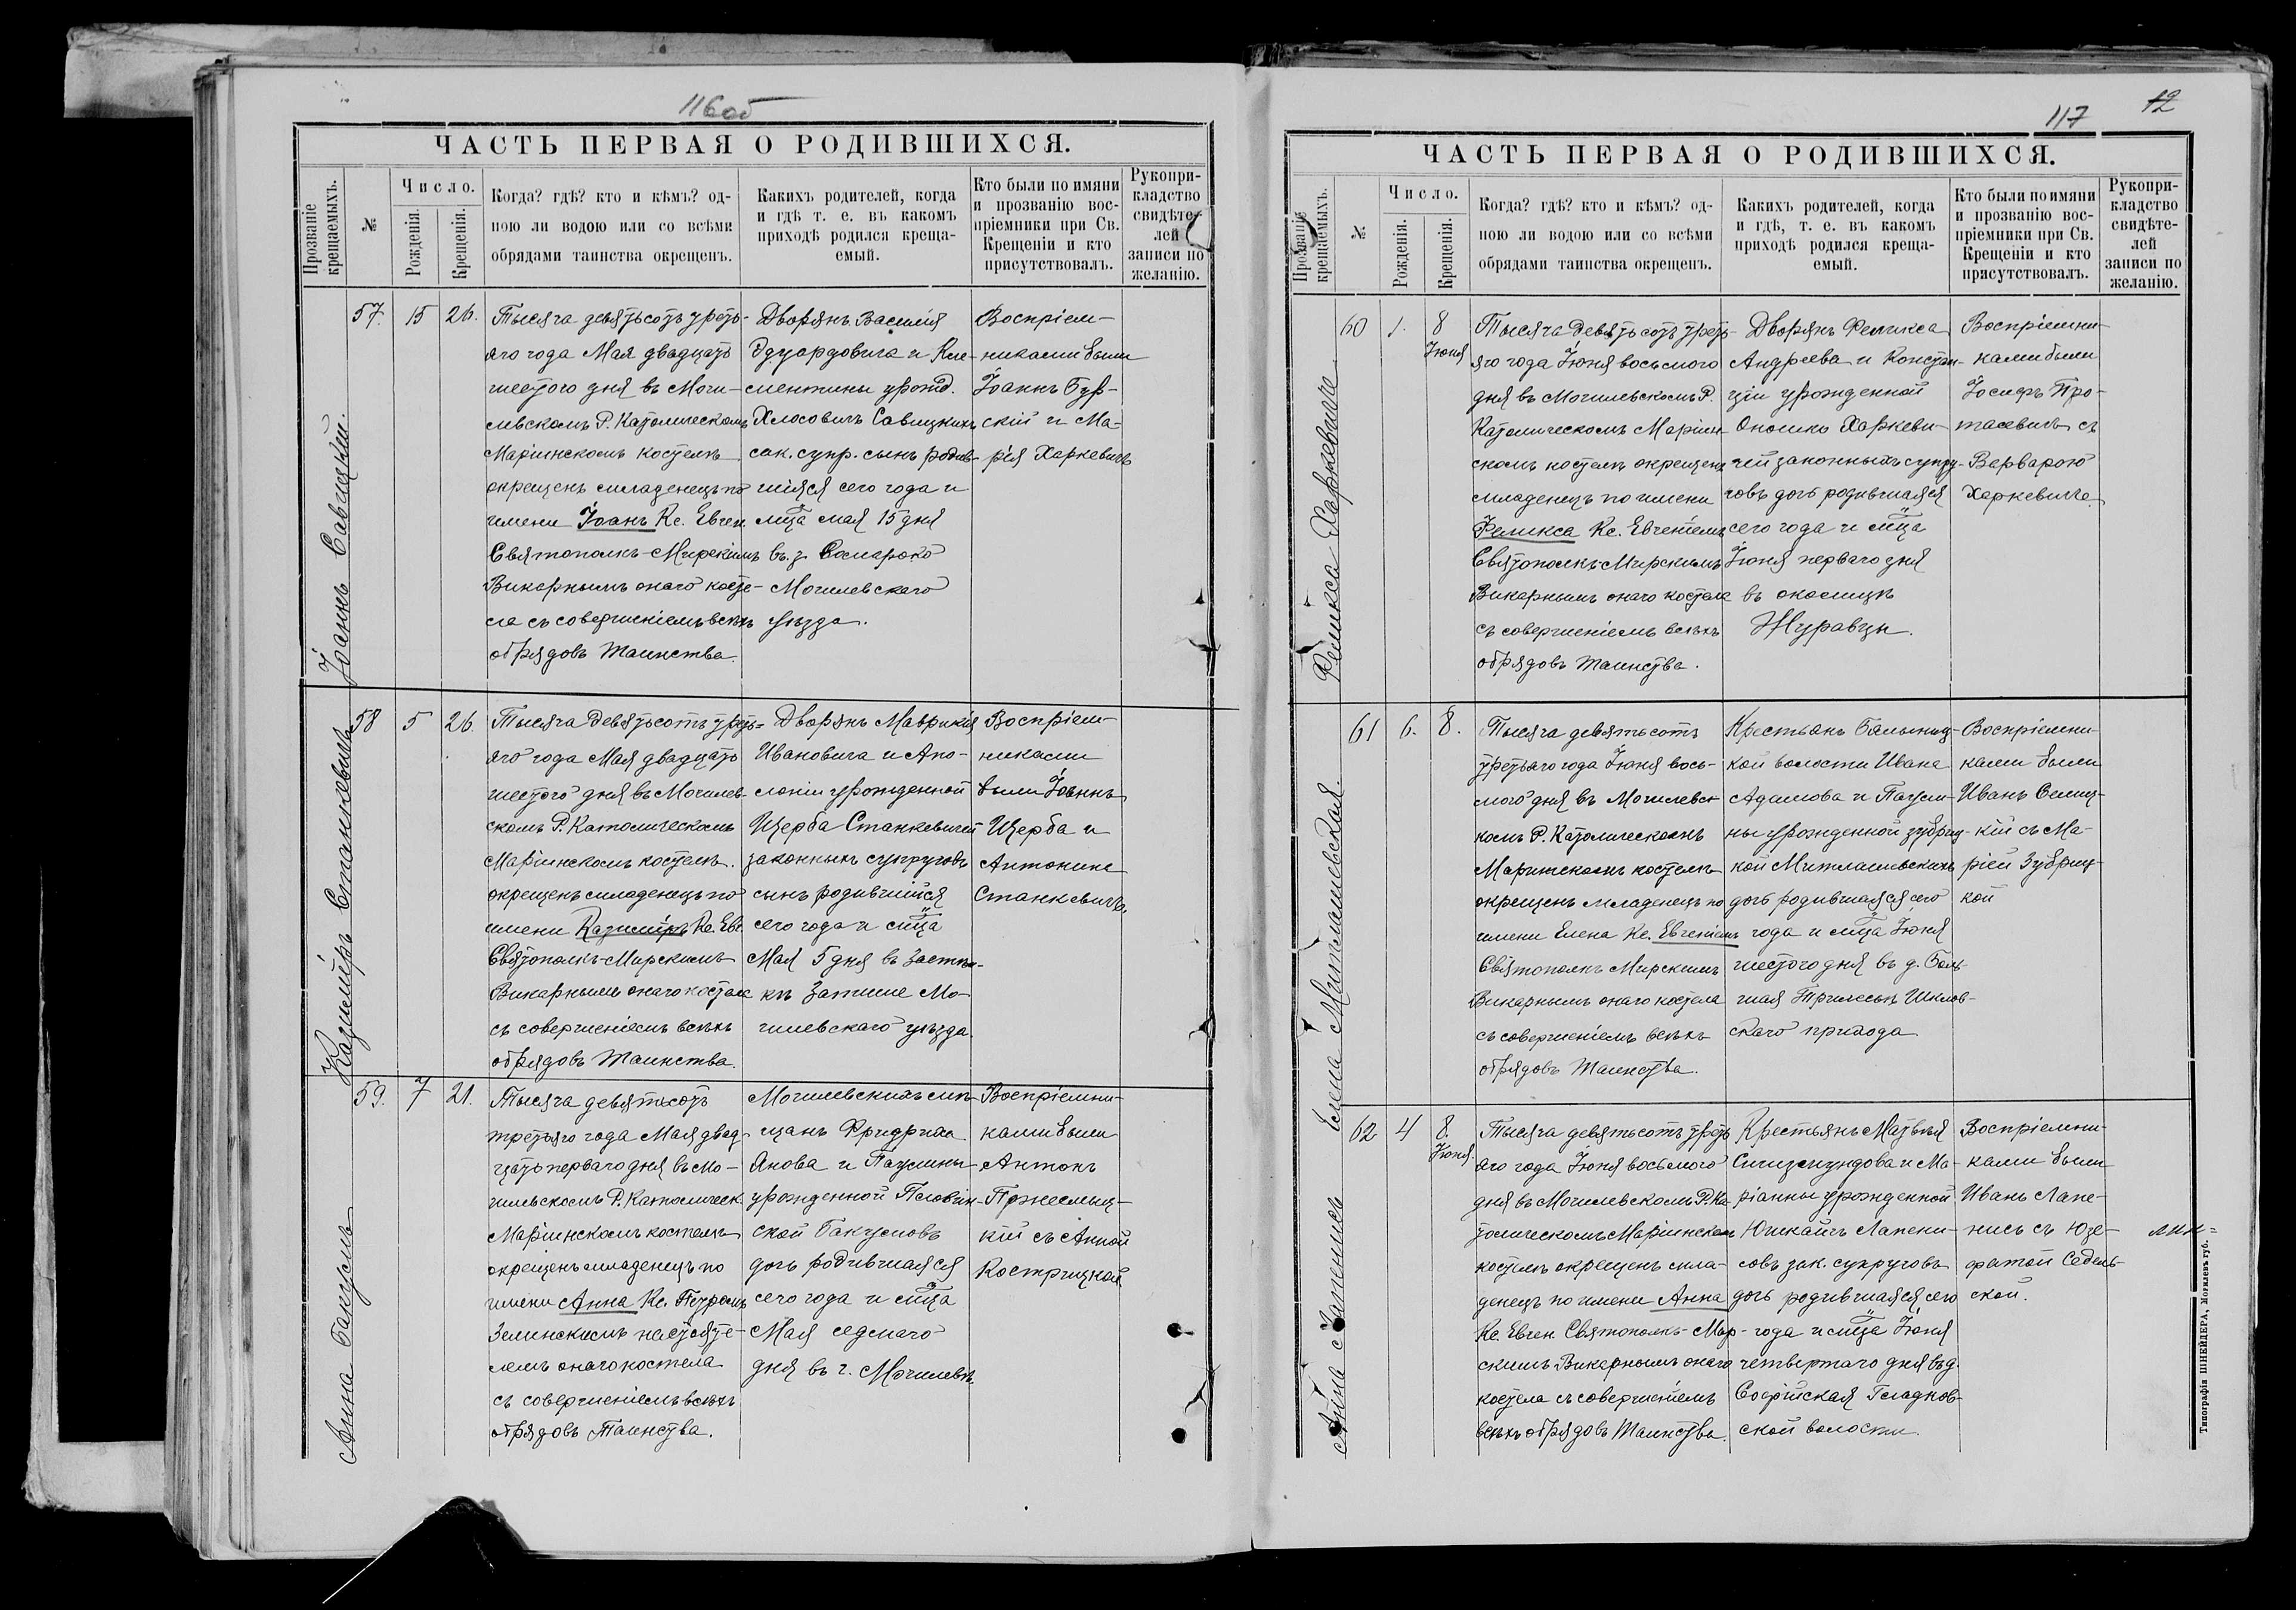 116об
ЧАСТЬ ПЕРВАЯ О РОДИВШИХСЯ.
Прозваніе крещаемыхъ.
№
Число.
Рожденія.
Крещенія.
Когда? гдѣ? кто и кѣмъ? од-
ною ли водою или со всѣми
обрядами таинства окрещенъ.
Какихъ родителей, когда
и гдѣ т. е. въ какомъ
приходѣ родился креща-
емый.
Кто были по имяни
и прозванію вос-
пріемники при Св.
Крещеніи и кто
присутствовалъ.
Рукопри-
кладство
свидѣте-
лей
записи по
желанію.
Іоаннъ Савицкій.
57.
15
26.
Тысяча девятьсотъ треть-
яго года Мая двадцать
шестого дня въ Моги-
левскомъ Р. Католическомъ
Маріинскомъ костелѣ
окрещенъ младенецъ по
имени Іоанъ Кс. Евген.
Святополкъ-Мирскимъ
Викарнымъ онаго косте-
ла съ совершеніемъ всѣхъ
обрядовъ Таинства.
Дворянъ Василія
Эдуардовича и Кле-
ментины урожд.
Савицкихъ
зак. супр. сынъ родив-
шійся сего года и
мца мая 15 дня
въ
Могилевскаго
уѣзда.
Воспріем-
никами были
Іоаннъ Бур-
скій и Ма-
рія Харкевичъ
Казиміръ Станкевичъ
58
5
26.
Тысяча девятьсотъ треть-
яго года Мая двадцать
шестого дня въ Могилев-
скомъ Р. Католическомъ
Маріинскомъ костелѣ
окрещенъ младенецъ по
имени Казиміръ Кс. Евг.
Святополкъ-Мирскимъ
Викарнымъ онаго костела
съ совершеніемъ всѣхъ
обрядовъ Таинства.
Дворянъ Маврикія
Ивановича и Апо-
лоніи урожденной
Щерба Станкевичей
законныхъ супруговъ
сынъ родившійся
сего года и мца
Мая 5 дня въ застѣн-
кѣ Затишье Мо-
гилевскаго уѣзда.
Воспріем-
никами
были Іоаннъ
Щерба и
Антонина
Станкевичъ.
Анна Бакумъ
59.
7
21.
Тысяча девятьсотъ
третьяго года Мая двад-
цать перваго дня въ Мо-
гилевскомъ Р. Католическ.
Маріинскомъ костелѣ
окрещенъ младенецъ по
имени Анна Кс. Петромъ
Зелинскимъ настояте-
лемъ онаго костела
съ совершеніемъ всѣхъ
обрядовъ Таинства.
Могилевскихъ мѣ-
щанъ Фридриха
Янова и Паулины
урожденной
ской Бакумовъ
дочь родившаяся
сего года и мца
Мая седмаго
дня въ г. Могилевѣ.
Воспріемни-
ками были
Антонъ
кій съ Анной
Кострицкой
117
12
ЧАСТЬ ПЕРВАЯ О РОДИВШИХСЯ.
Прозваніе крещаемыхъ.
№
Число.
Рожденія.
Крещенія.
Когда? гдѣ? кто и кѣмъ? од-
ною ли водою или со всѣми
обрядами таинства окрещенъ.
Какихъ родителей, когда
и гдѣ, т. е. въ какомъ
приходѣ родился креща-
емый.
Кто были по имяни
и прозванію вос-
пріемники при Св.
Крещеніи и кто
присутствовалъ.
Рукопри-
кладство
свидѣте-
лей
записи по
желанію.
Феликса Харкевичъ
60
1.
8
Іюня
Тысяча девятьсотъ треть-
яго года Іюня восьмого
дня въ Могилевскомъ Р.
Католическомъ Маріин-
скомъ костелѣ окрещенъ
младенецъ по имени
Феликса Кс. Евгеніемъ
Святополкъ-Мирскимъ
Викарнымъ онаго костела
съ совершеніемъ всѣхъ
обрядовъ Таинства.
Дворянъ Феликса
Андреева и Констан-
ціи урожденной
Оношко Харкеви-
чей законныхъ супру-
говъ дочь родившаяся
сего года и мца
Іюня перваго дня
въ околицѣ
Журавцы.
Воспріемни-
ками были
Іосифъ Про-
тасевичъ съ
Варварою
Харкевичъ.
Елена Митлашевская.
61
6.
8.
Тысяча девятьсотъ
третьяго года Іюня вось-
мого дня въ Могилевс-
комъ Р. Католическомъ
Маріинскомъ костелѣ
окрещенъ младенецъ по
имени Елена Кс. Евгеніемъ
Святополкъ Мирскимъ
Викарнымъ онаго костела
съ совершеніемъ всѣхъ
обрядовъ Таинства.
Крестьянъ Бялыниц-
кой волости Ивана
Адамова и Паули-
ны урожденной Зубриц-
кой Митлашевскихъ
дочь родившаяся сего
года и мца Іюня
шестого дня въ д. Боль-
шая Трилесы Шклов-
скаго прихода
Воспріемни-
ками были
кій съ Ма-
ріей Зубриц-
кой
Анна Лапенись
62
4
8.
Іюня
Тысяча девятьсотъ треть-
яго года Іюня восьмого
дня въ Могилевскомъ Р. Ка-
толическомъ Маріинскомъ
костелѣ окрещенъ мла-
денецъ по имени Анна
Кс. Евген. Святополкъ-Мир-
скимъ Викарнымъ онаго
костела съ совершеніемъ
всѣхъ обрядовъ Таинства.
Крестьянъ Матвѣя
Сигизмундова и Ма-
ріанны урожденной
Лапени-
совъ зак. супруговъ
дочь родившаяся сего
года и мца Іюня
четвертаго дня въ д.
Софійская Гладков-
ской волости.
Воспріемни-
ками были
Иванъ Лапе-
нисъ съ Юзе-
фатой Седель-
ской.
Типографія ШНЕЙДЕРА, Могилевъ губ.